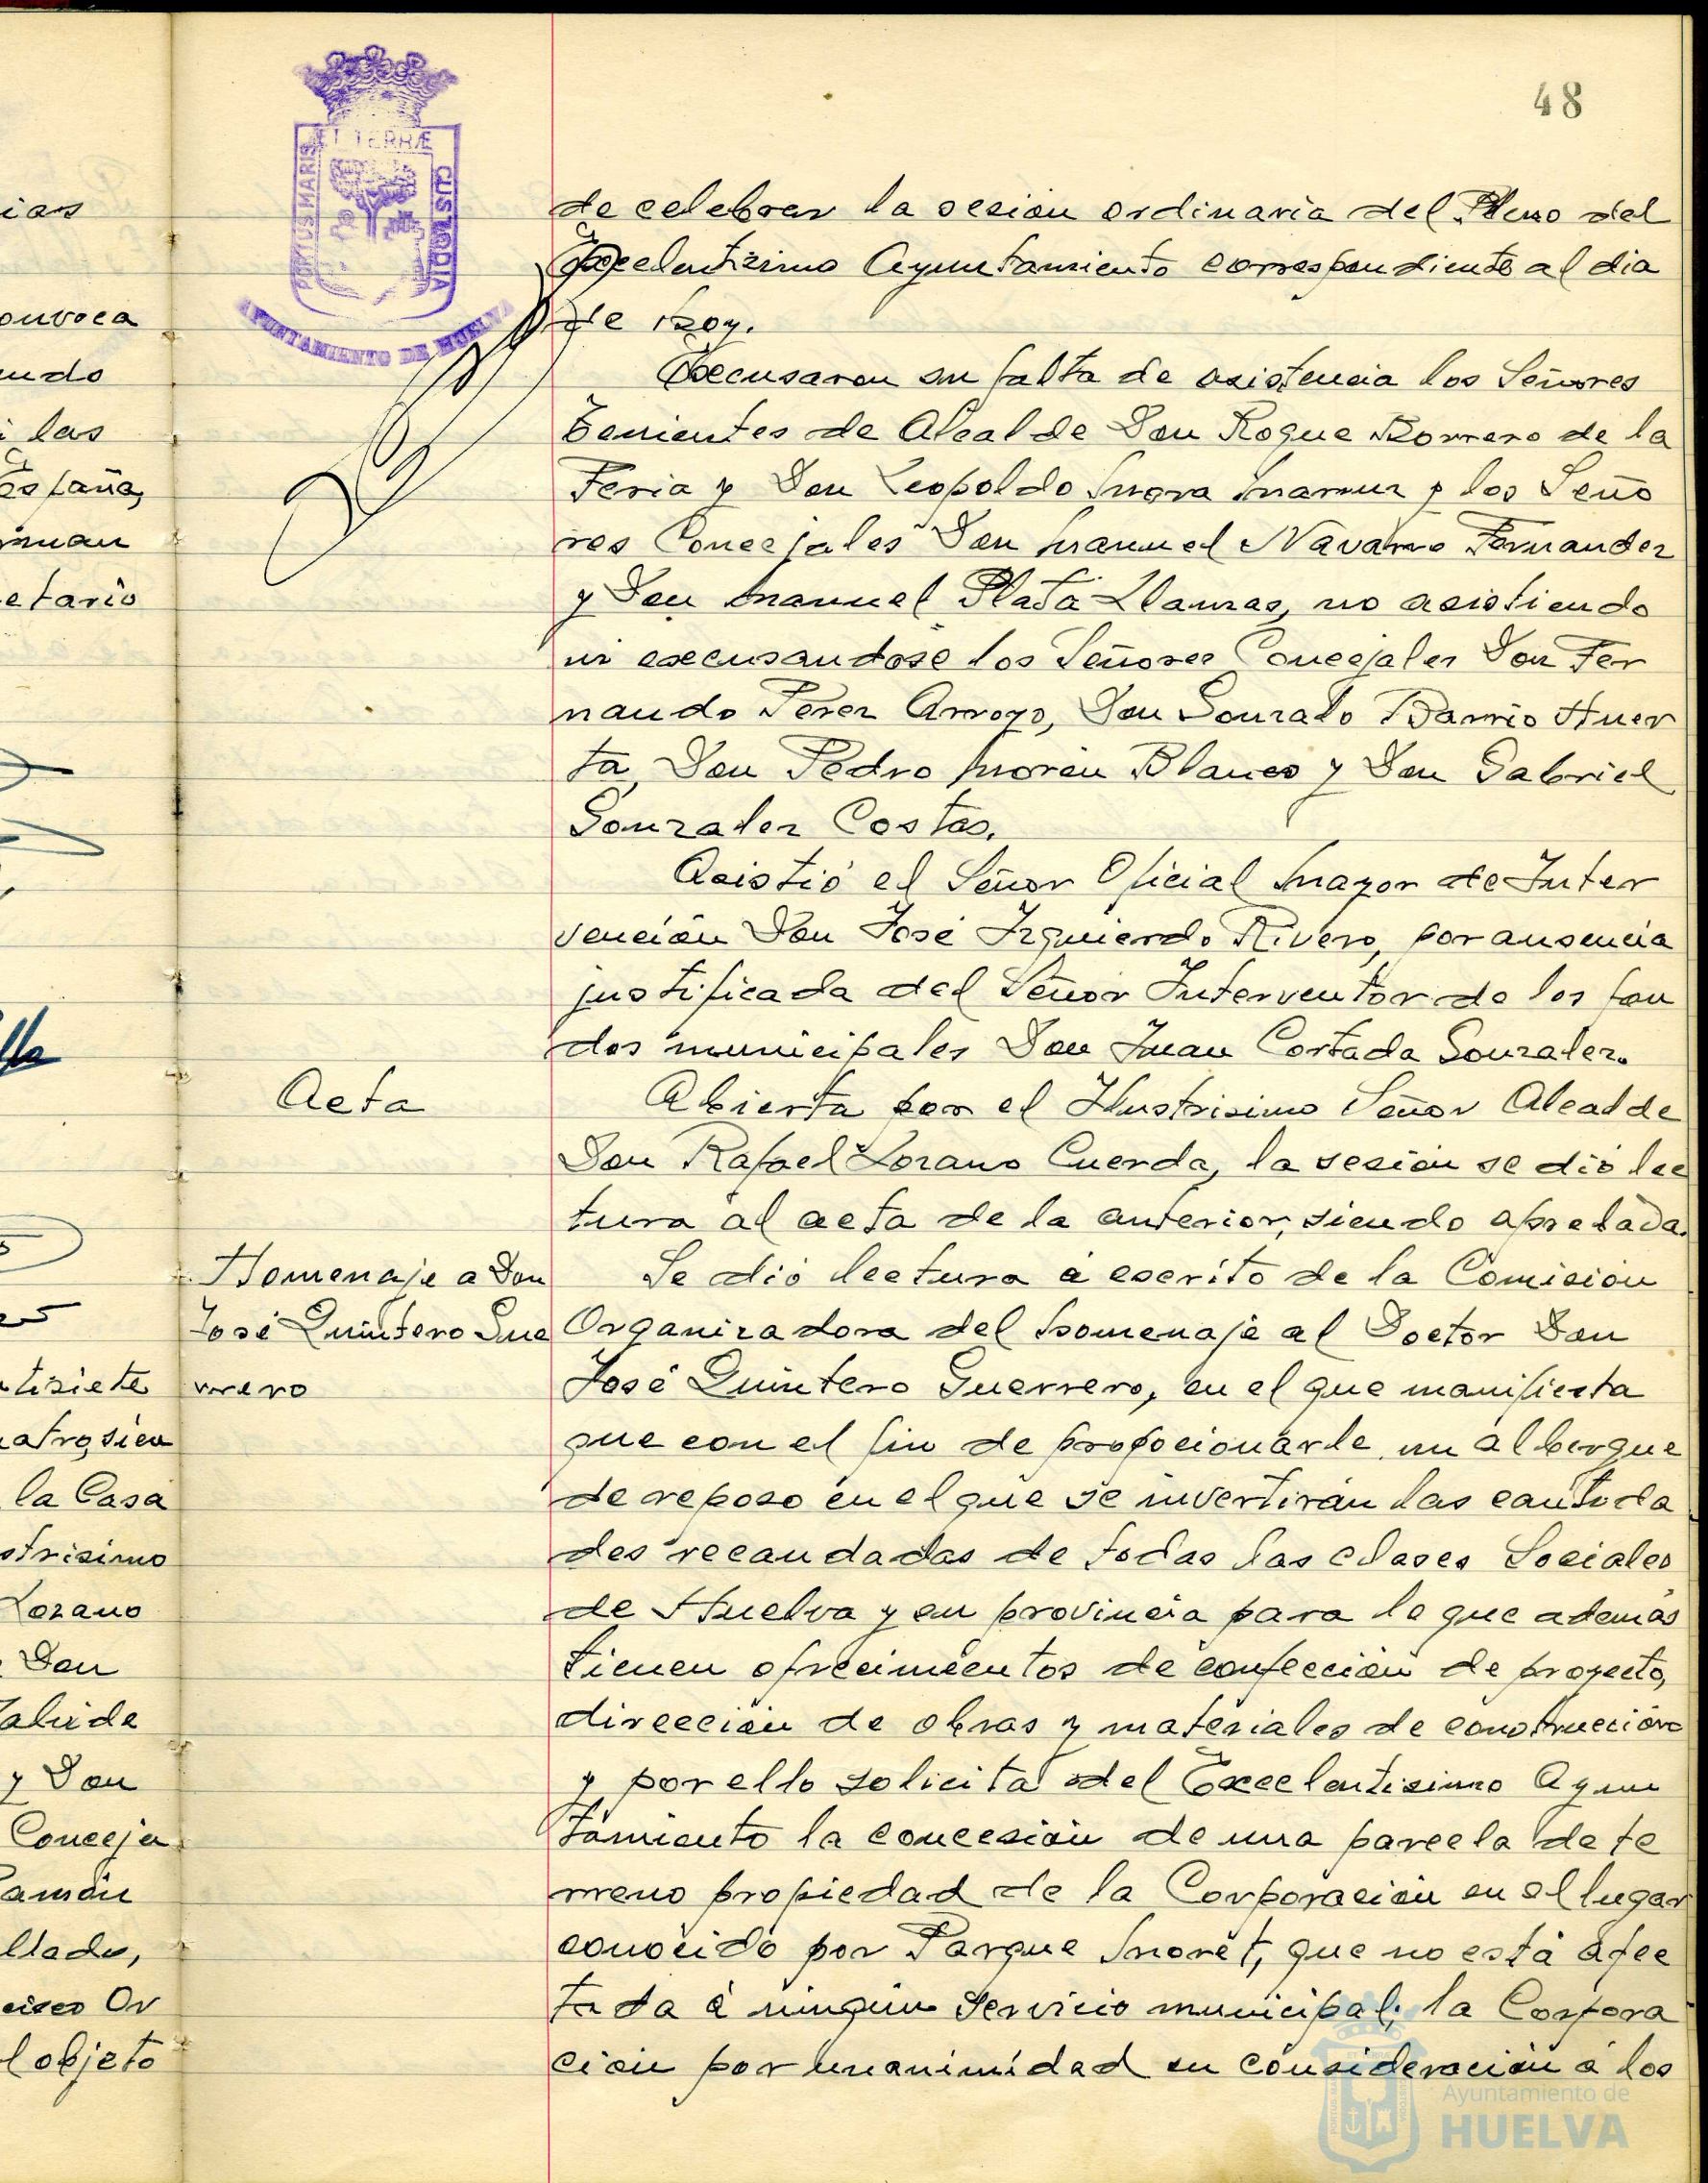 48
PORTUS MARIS
ET TERRÆ
CUSTODIA
AYUNTAMIENTO DE HUELVA
de celebrar la sesión ordinaria del Pleno del
Excelentísimo Ayuntamiento correspondiente al dia
de hoy.
Excusaron su falta de asistencia los Señores
Tenientes de Alcalde Don Roque Borrero de la
Feria y Don Leopoldo Mora y los Seño
res Concejales Don Manuel Navarro Fernandez
y Don Manuel Plata Llanzas, no asistiendo
ni excusandose los Señores Concejales Don Fer
nando Perez Arroyo, Don Gonzalo Barrio Huer
ta, Don Pedro Morón Blanco y Don Gabriel
Gonzalez Costas.
Asistió el Señor Oficial Mayor de Inter
vención Don José Izquierdo Rivero, por ausencia
justificada del Señor Interventor de los fon
dos municipales Don Juan Cortada Gonzalez.
Acta
Abierta por el Ilustrisimo Señor Alcalde
Don Rafael Lozano Cuerda, la sesión se dió lec
tura al acta de la anterior, siendo aprobada.
Homenaje a Don
José Quintero Gue
rrero
Se dió lectura a escrito de la Comisión
Organizadora del homenaje al Doctor Don
José Quintero Guerrero, en el que manifiesta
que con el fin de propocionarle un albergue
de reposo en el que se invertirán las cantida
des recaudadas de todas las clases Sociales
de Huelva y su provincia para lo que además
tienen ofrecimientos de confección de proyecto,
dirección de obras y materiales de construcción
y por ello solicita del Excelentisimo Ayun
tamiento la concesión de una parcela de te
rreno propiedad de la Corporación en el lugar
conocido por Parque Moret, que no está afec
tada a ningún Servicio municipal; la Corpora
ción por unanimidad en consideración a los
ias
onvoca
ndo
i las
España,
etario
tisiete
la Casa
strisimo
Lozano
Don
y Don
Conceja
amón
llado,
l objeto
Ayuntamiento de
HUELVA